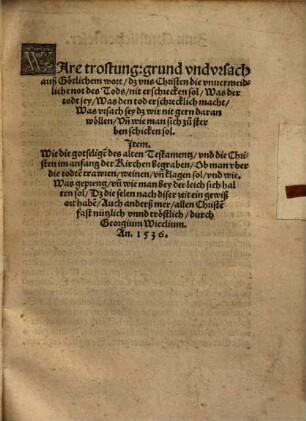 WAre trostung: grund vnd vrsach
auß Götlichem wort / dz vns Christen die vnuermeid-
liche not des Tods / nit erschrecken sol / Was der
todt sey / Was den tod erschrecklich macht /
Was vrsach sey dz wir nit gern daran
wöllen / Vñ wie man sich zů ster
ben schicken sol.
Item.
Wie die gotseligẽ des alten Testamentz / vnd die Chri-
sten im anfang der Kirchen begraben / Ob man vber
die todtẽ trawren / weinen / vñ klagen sol / vnd wie,
Was gepreng / vñ wie man bey der leich sich hal
ten sol / Dz die selen nach diser zeit ein gewiß
ort habẽ / Auch anderß mer / allen Christẽ
fast nützlich vnnd tröstlich / durch
Georgium Wicelium.
An. 1536.